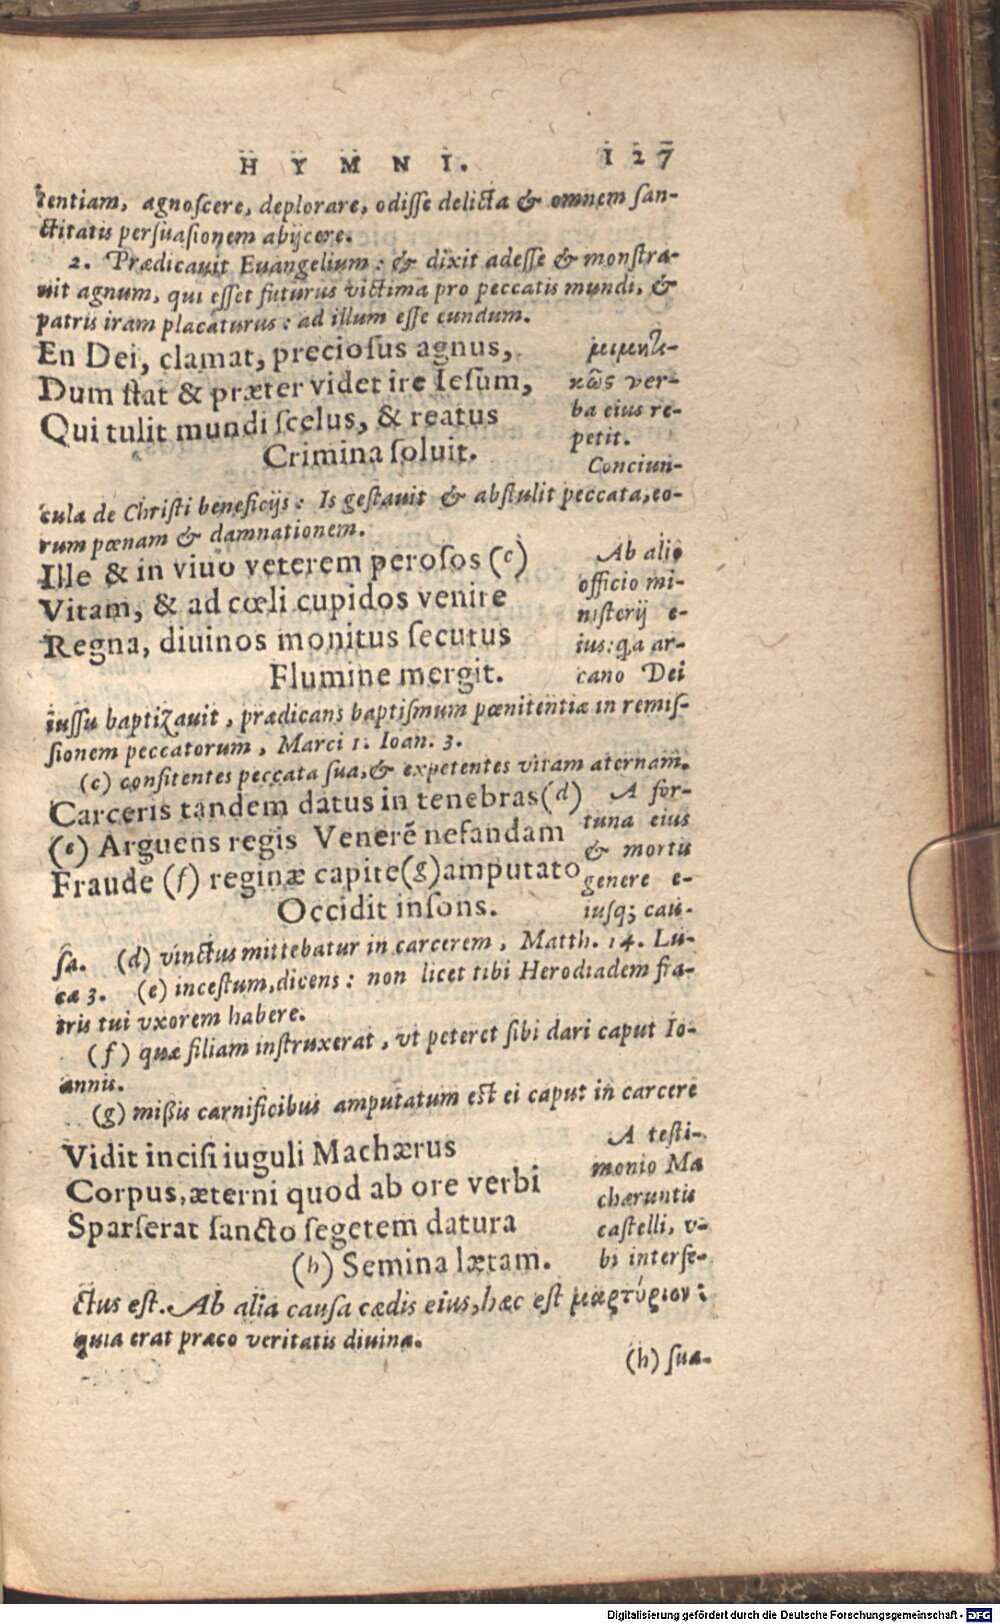 HYMNI. 127
tentiam, agnoscere, deplorare, odisse delicta & omnem san-
ctitatis persuasionem abijcere.
2. Prædicauit Euangelium: & dixit adesse & monstra-
uit agnum, qui esset futurus victima pro peccatis mundi, &
patris iram placaturus: ad illum esse eundum.
En Dei, clamat, preciosus agnus,
Dum stat & præter videt ire Iesum,
Qui tulit mundi scelus, & reatus
Crimina soluit.
μιμητι-
κῶς ver-
ba eius re-
petit.
Conciun-
cula de Christi beneficijs: Is gestauit & abstulit peccata, eo-
rum pœnam & damnationem.
Ille & in viuo veterem perosos (c)
Vitam, & ad cœli cupidos venire
Regna, diuinos monitus secutus
Flumine mergit.
Ab alio
officio mi-
nisterij e-
ius: qa ar-
cano Dei
iussu baptizauit, prædicans baptismum pœnitentiæ in remis-
sionem peccatorum, Marci 1. Ioan. 3.
(c) confitentes peccata sua, & expetentes vitam æternam.
Carceris tandem datus in tenebras (d)
(e) Arguens regis Venerē nefandam
Fraude (f) reginæ capite (g) amputato
Occidit insons.
A for-
tuna eius
& mortis
genere e-
iusq; cau-
sa. (d) vinctus mittebatur in carcerem, Matth. 14. Lu-
cæ 3. (e) incestum, dicens: non licet tibi Herodiadem fra-
tris tui vxorem habere.
(f) quæ filiam instruxerat, vt peteret sibi dari caput Io-
annis.
(g) mißis carnificibus amputatum est ei caput in carcere
Vidit incisi iuguli Machærus
Corpus, æterni quod ab ore verbi
Sparserat sancto segetem datura
(h) Semina lætam.
A testi-
monio Ma
chæruntis
castelli, v-
bi interfe-
ctus est. Ab alia causa cædis eius, hæc est μαρτύριον:
quia erat præco veritatis diuinæ.
(h) sua-
Digitalisierung gefördert durch die Deutsche Forschungsgemeinschaft - DFG